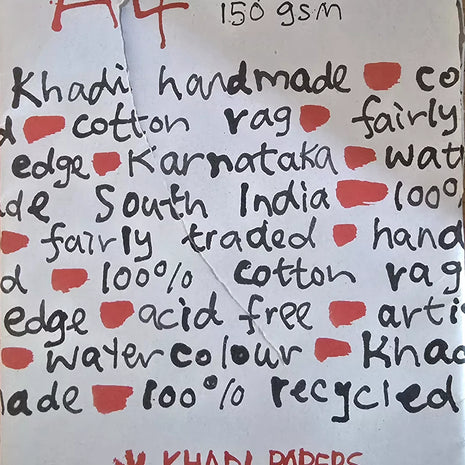 A4 150 gsm
Khadi handmade co
d cotton rag fairly
edge Karnataka wat
de South India 100%
fairly traded hand
d 100% cotton rag
edge acid free arti
watercolour Khad
ade 100% recycled
KHADI PAPERS